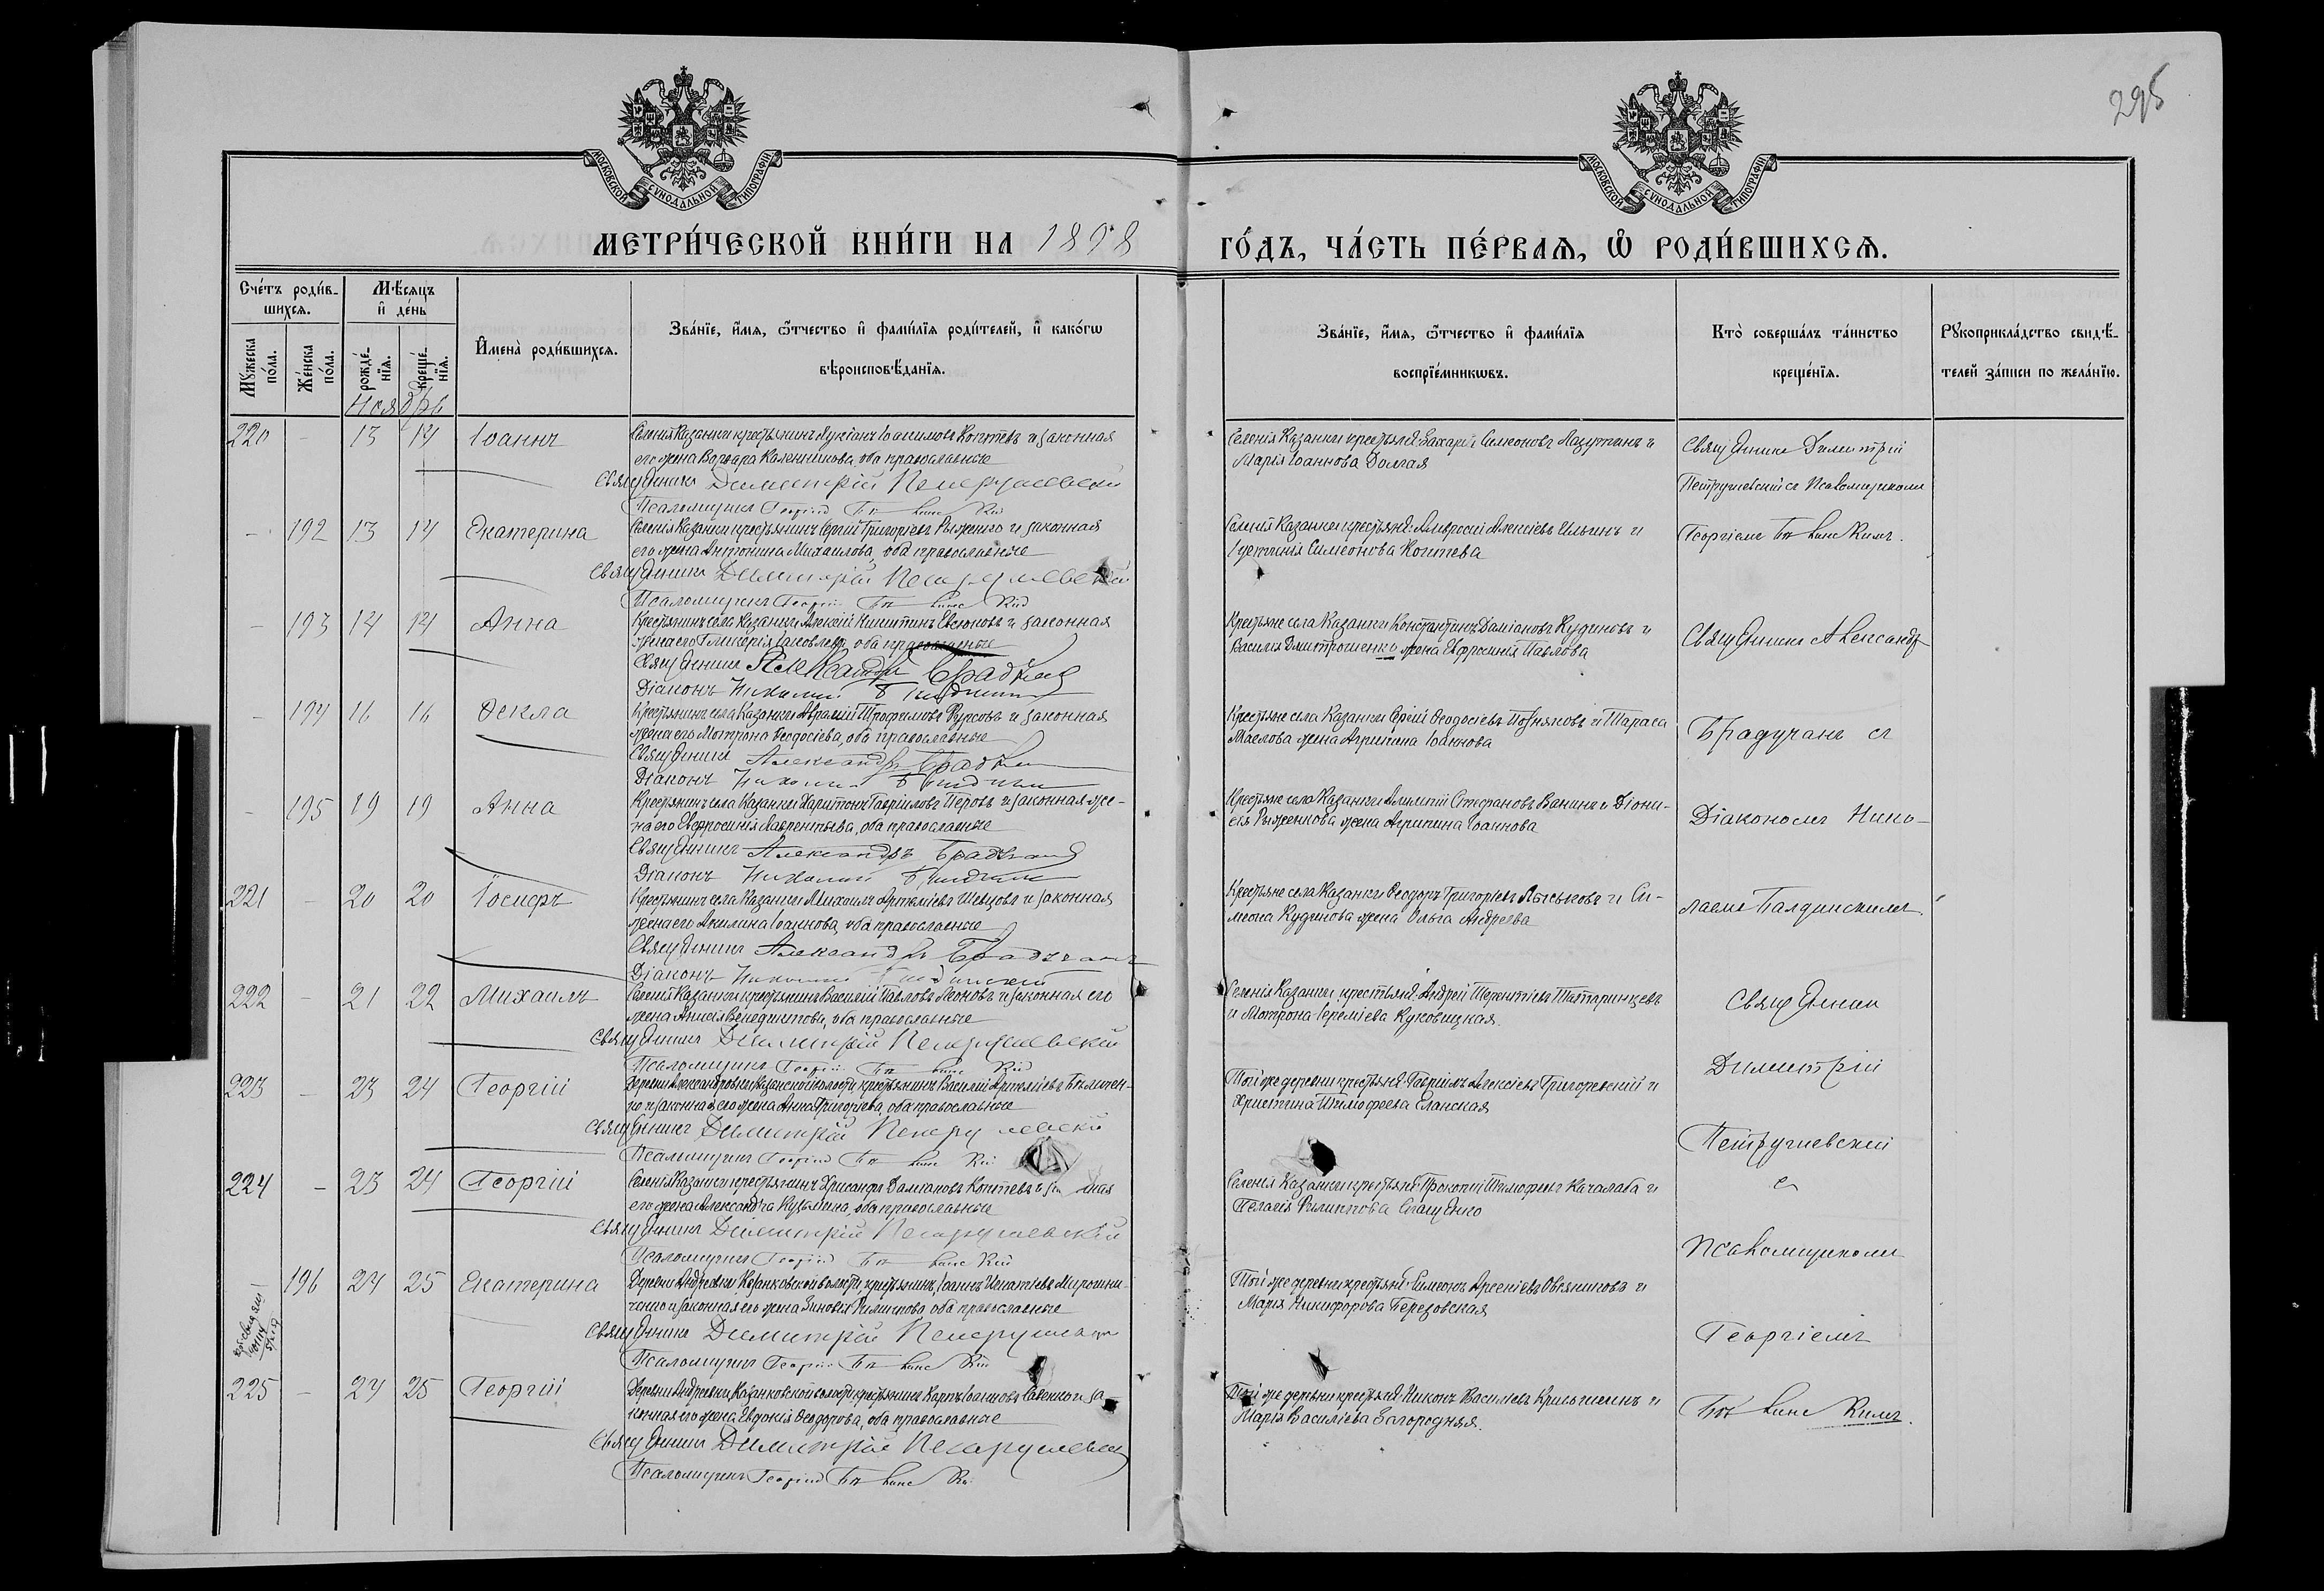 295
МОСКОВСКОЙ СѴНОДАЛЬНОЙ ТИПОГРАФІИ
МОСКОВСКОЙ СѴНОДАЛЬНОЙ ТИПОГРАФІИ
МЕТРИ́ЧЕСКОЙ КНИ́ГИ НА 1898
ГО́ДЪ, ЧА́СТЬ ПЕ́РВАЯ, Ѡ РОДИ́ВШИХСѦ.
Сче́тъ роди́в-
шихсѧ.
Мꙋ́жеска
по́ла.
Же́нска
по́ла.
Мѣ́сяцъ
и҆ де́нь
рожде́-
нїѧ.
креще́-
нїѧ.
Ноябрь
И҆мена̀ роди́вшихсѧ.
Зва́нїе, и҆́мѧ, ѻ҆́тчество и҆ фами́лїѧ роди́телей, и҆ како́гѡ
вѣроисповѣ́данїѧ.
Зва́нїе, и҆́мѧ, ѻ҆́тчество и҆ фами́лїѧ
воспрїе́мникѡвъ.
Кто̀ соверша́лъ та́инство
креще́нїѧ.
Рꙋкоприкла́дство свидѣ́-
телей за́писи по жела́нїю.
220 - 13 14 Іоаннъ
Селенія Казанки крестьянинъ Лукіанъ Іоакимовъ Коптевъ и законная
его жена Варвара Калинникова, оба православные
Священникъ Димитрій Петрушевскій
Псаломщикъ Георгій
Селенія Казанки крестьяне: Захарій Симеоновъ Лазуткинъ и
Марія Іоаннова Долгая
Священникъ Димитрій
Петрушевскій съ Псаломщикомъ
- 192 13 14 Екатерина
Селенія Казанки крестьянинъ Сергій Григорьевъ Рыженко и законная
его жена Антонина Михаилова, оба православные
Священникъ Димитрій Петрушевскій
Псаломщикъ Георгій
Селенія Казанки крестьяне: Амвросій Алексіевъ Ильинъ и
Симеонова Коптева
Георгіемъ
- 193 14 14 Анна
Крестьянинъ села Казанки Алексій Никитинъ Евсюковъ и законная
жена его Гликерія Іаковлева, оба православные
Священникъ Александръ Брадучанъ
Діаконъ Николай
Крестьяне села Казанки Константинъ Даміановъ Кудиновъ и
Василія Дмитрошенко жена Евфросинія Павлова
Священникъ Александръ
- 194 16 16 Ѳекла
Крестьянинъ села Казанки Авраамій Трофимовъ Фурсовъ и законная
жена его Мотрона Ѳеодосіева, оба православные
Священникъ Александръ Брадучанъ
Діаконъ Николай
Крестьяне села Казанки Сергій Ѳеодосіевъ Позняковъ и Тараса
Маслова жена Агрипина Іоаннова
Брадучанъ съ
- 195 19 19 Анна
Крестьянинъ села Казанки Харитонъ Гавріиловъ Перовъ и законная же-
на его Евфросинія Лаврентьева, оба православные
Священникъ Александръ Брадучанъ
Діаконъ Николай
Крестьяне села Казанки Алимпій Стефановъ Ванинъ и Діони-
сія Рыженкова жена Агрипина Іоаннова
Діакономъ Нико-
221 - 20 20 Іосифъ
Крестьянинъ села Казанки Михаилъ Артеміевъ Шевцовъ и законная
жена его Акилина Іоаннова, оба православные
Священникъ Александръ Брадучанъ
Діаконъ Николай
Крестьяне села Казанки Ѳеодоръ Григорьевъ Ласьковъ и Си-
меона Кудинова жена Ольга Андреева
лаемъ Палдинскимъ
222 - 21 22 Михаилъ
Селенія Казанки крестьянинъ Василій Павловъ Леоновъ и законная его
жена Анисія Венедиктова, оба православные
Священникъ Димитрій Петрушевскій
Псаломщикъ Георгій
Селенія Казанки крестьяне: Андрей Терентіевъ Татаринцевъ
и Мотрона Іереміева Куковицкая.
Священникъ
223 - 23 24 Георгій
Деревни Александровки Казанской волости, крестьянинъ Василій Артеміевъ
и законная его жена Анна Григорьева, оба православные
Священникъ Димитрій Петрушевскій
Псаломщикъ Георгій
Той же деревни крестьяне: Гавріилъ Алексіевъ Григоревскій и
Христина Тимоѳеева Еланская
Димитрій
Петрушевскій
224 - 23 24 Георгій
Селенія Казанки крестьянинъ Хрисанфъ Даміановъ Коптевъ и
его жена Александра Кузьмина, оба православные
Священникъ Димитрій Петрушевскій
Псаломщикъ Георгій
Селенія Казанки крестьяне: Прокопій Тимоѳеевъ Качалаба и
Пелагія Филиппова Сващенко
съ
Псаломщикомъ
- 196 24 25 Екатерина
Деревни Андреевки, Казанковской волости, крестьянинъ, Іоаннъ Игнатіевъ Мирошни-
ченко и законная его жена Зиновія Филиппова, оба православные
Священникъ Димитрій Петрушевскій
Псаломщикъ Георгій
Той же деревни крестьяне: Симеонъ Арсеніевъ Овсянниковъ и
Марія Никифорова Березовская
Георгіемъ
225 - 24 25 Георгій
Деревни Андреевки, Казанковской волости, крестьянинъ Карпъ Іоанновъ Савенко и за-
конная его жена Евдокія Ѳеодорова, оба православные
Священникъ Димитрій Петрушевскій
Псаломщикъ Георгій
Той же деревни крестьяне: Никонъ Василіевъ и
Марія Василіева Загородняя.